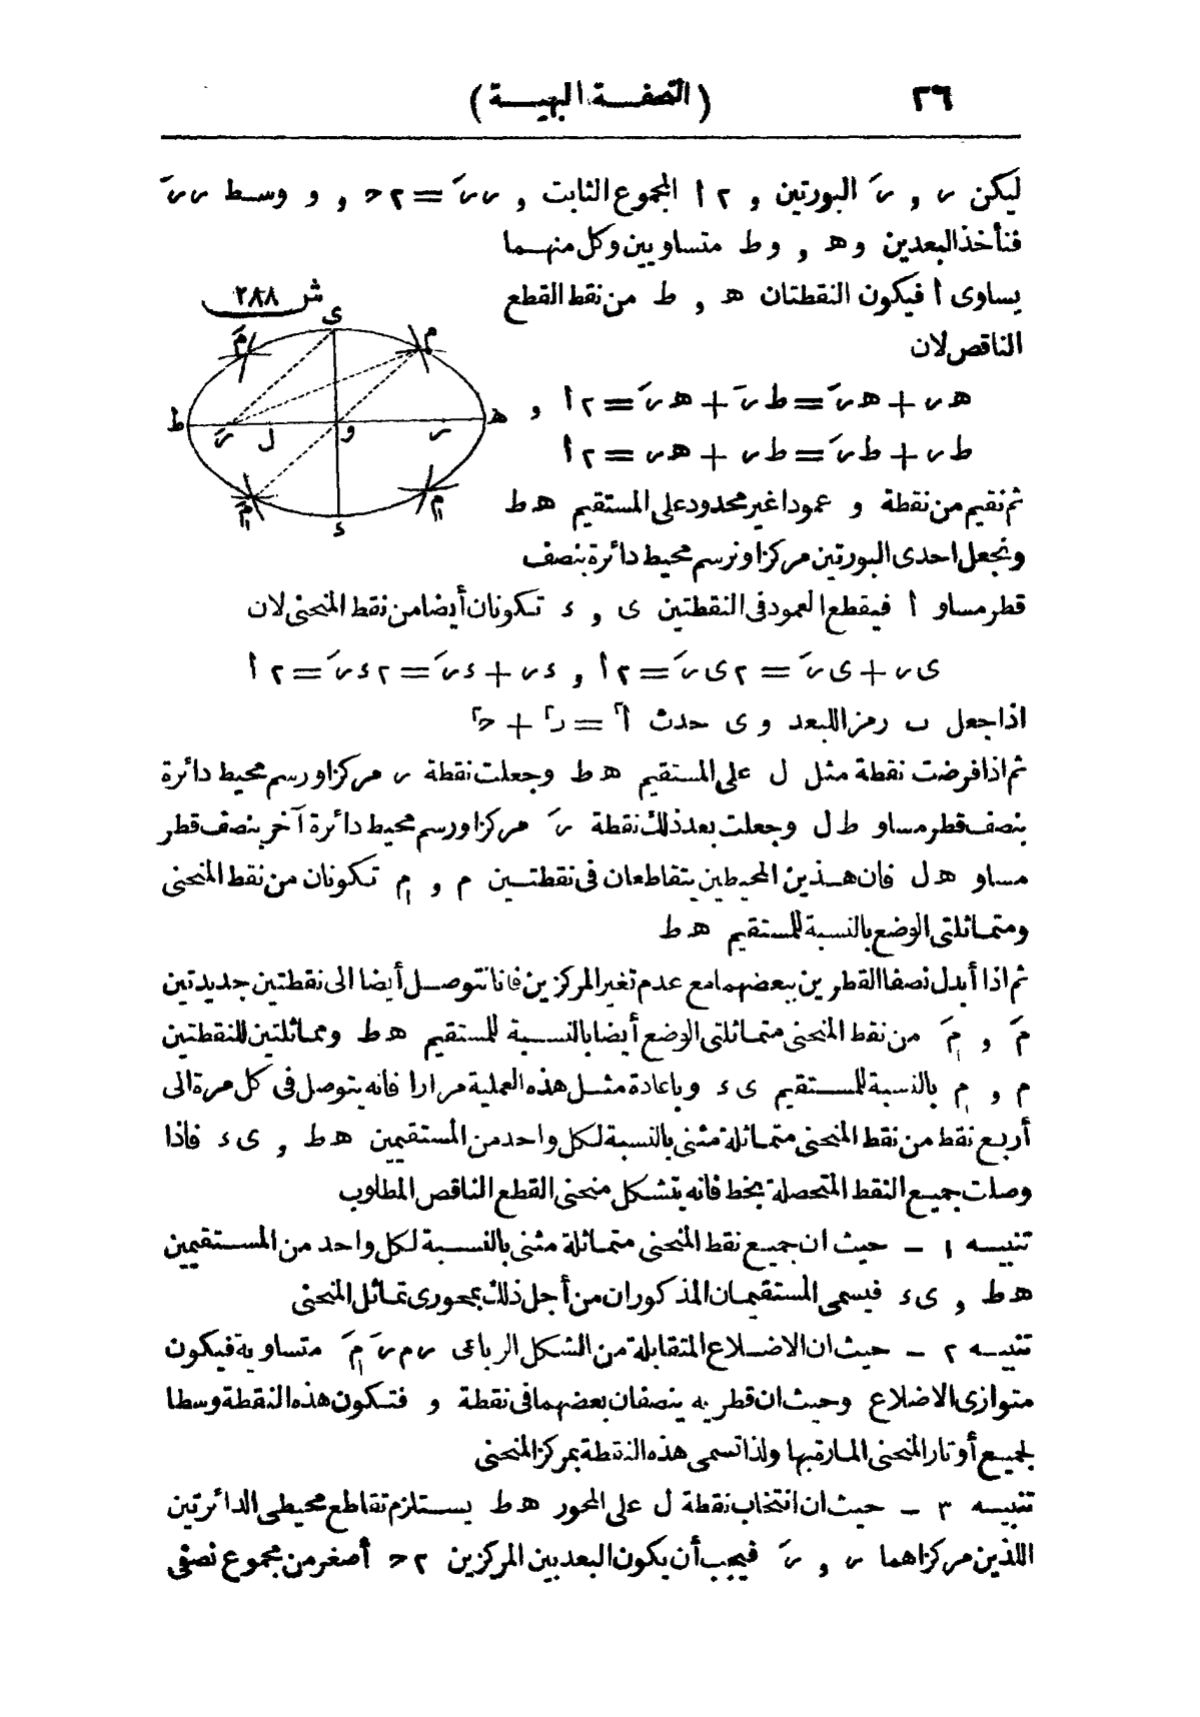 ٢٦ (التحفة البهية)
ليكن ر , رَ البورتين , ٢ أ المجموع الثابت , ررَ = ٢ح , و وسط ررَ
فنأخذ البعدين وه , وط متساويين وكل منهما
يساوى أ فيكون النقطتان ه , ط من نقط القطع
الناقص لان
ش ٢٨٨
ى
م مَ
ط رَ ل و ر ه
مَ‌١ م‌١
ء
هر + هرَ = طرَ + هرَ = ٢أ ,
طر + طرَ = طر + هر = ٢أ
ثم نقيم من نقطة و عمودا غير محدود على المستقيم هط
ونجعل احدى البورتين مركزا ونرسم محيط دائرة بنصف
قطر مساو أ فيقطع العمود فى النقطتين ى , ء تكونان أيضا من نقط المنحنى لان
ىر + ىرَ = ٢ىرَ = ٢أ , ءر + ءرَ = ٢ءرَ = ٢أ
اذا جعل ب رمزا للبعد وى حدث أ٢ = ب٢ + ح٢
ثم اذا فرضت نقطة مثل ل على المستقيم هط وجعلت نقطة ر مركزا ورسم محيط دائرة
بنصف قطر مساو طل وجعلت بعد ذلك نقطة رَ مركزا ورسم محيط دائرة آخر بنصف قطر
مساو هل فان هذين المحيطين يتقاطعان فى نقطتين م , م‌١ تكونان من نقط المنحنى
ومتماثلتى الوضع بالنسبة للمستقيم هط
ثم اذا أبدل نصفا القطرين ببعضهما مع عدم تغير المركزين فاننا نتوصل أيضا الى نقطتين جديدتين
مَ , مَ‌١ من نقط المنحنى متماثلتى الوضع أيضا بالنسبة للمستقيم هط ومماثلتين للنقطتين
م , م‌١ بالنسبة للمستقيم ىء وباعادة مثل هذه العملية مرارا فانه يتوصل فى كل مرة الى
أربع نقط من نقط المنحنى متماثلة مثنى بالنسبة لكل واحد من المستقيمين هط , ىء فاذا
وصلت جميع النقط المتحصلة بخط فانه يتشكل منحنى القطع الناقص المطلوب
تنبيه ١ ـ حيث ان جميع نقط المنحنى متماثلة مثنى بالنسبة لكل واحد من المستقيمين
هط , ىء فيسمى المستقيمان المذكوران من أجل ذلك بمحورى تماثل المنحنى
تنبيه ٢ ـ حيث ان الاضلاع المتقابلة من الشكل الرباعى رمرَمَ‌١ متساوية فيكون
متوازى الاضلاع وحيث ان قطريه ينصفان بعضهما فى نقطة و فتكون هذه النقطة وسطا
لجميع أوتار المنحنى المارة بها ولذا تسمى هذه النقطة بمركز المنحنى
تنبيه ٣ ـ حيث ان انتخاب نقطة ل على المحور هط يستلزم تقاطع محيطى الدائرتين
اللذين مركزاهما ر , رَ فيجب أن يكون البعد بين المركزين ٢ح أصغر من مجموع نصفى